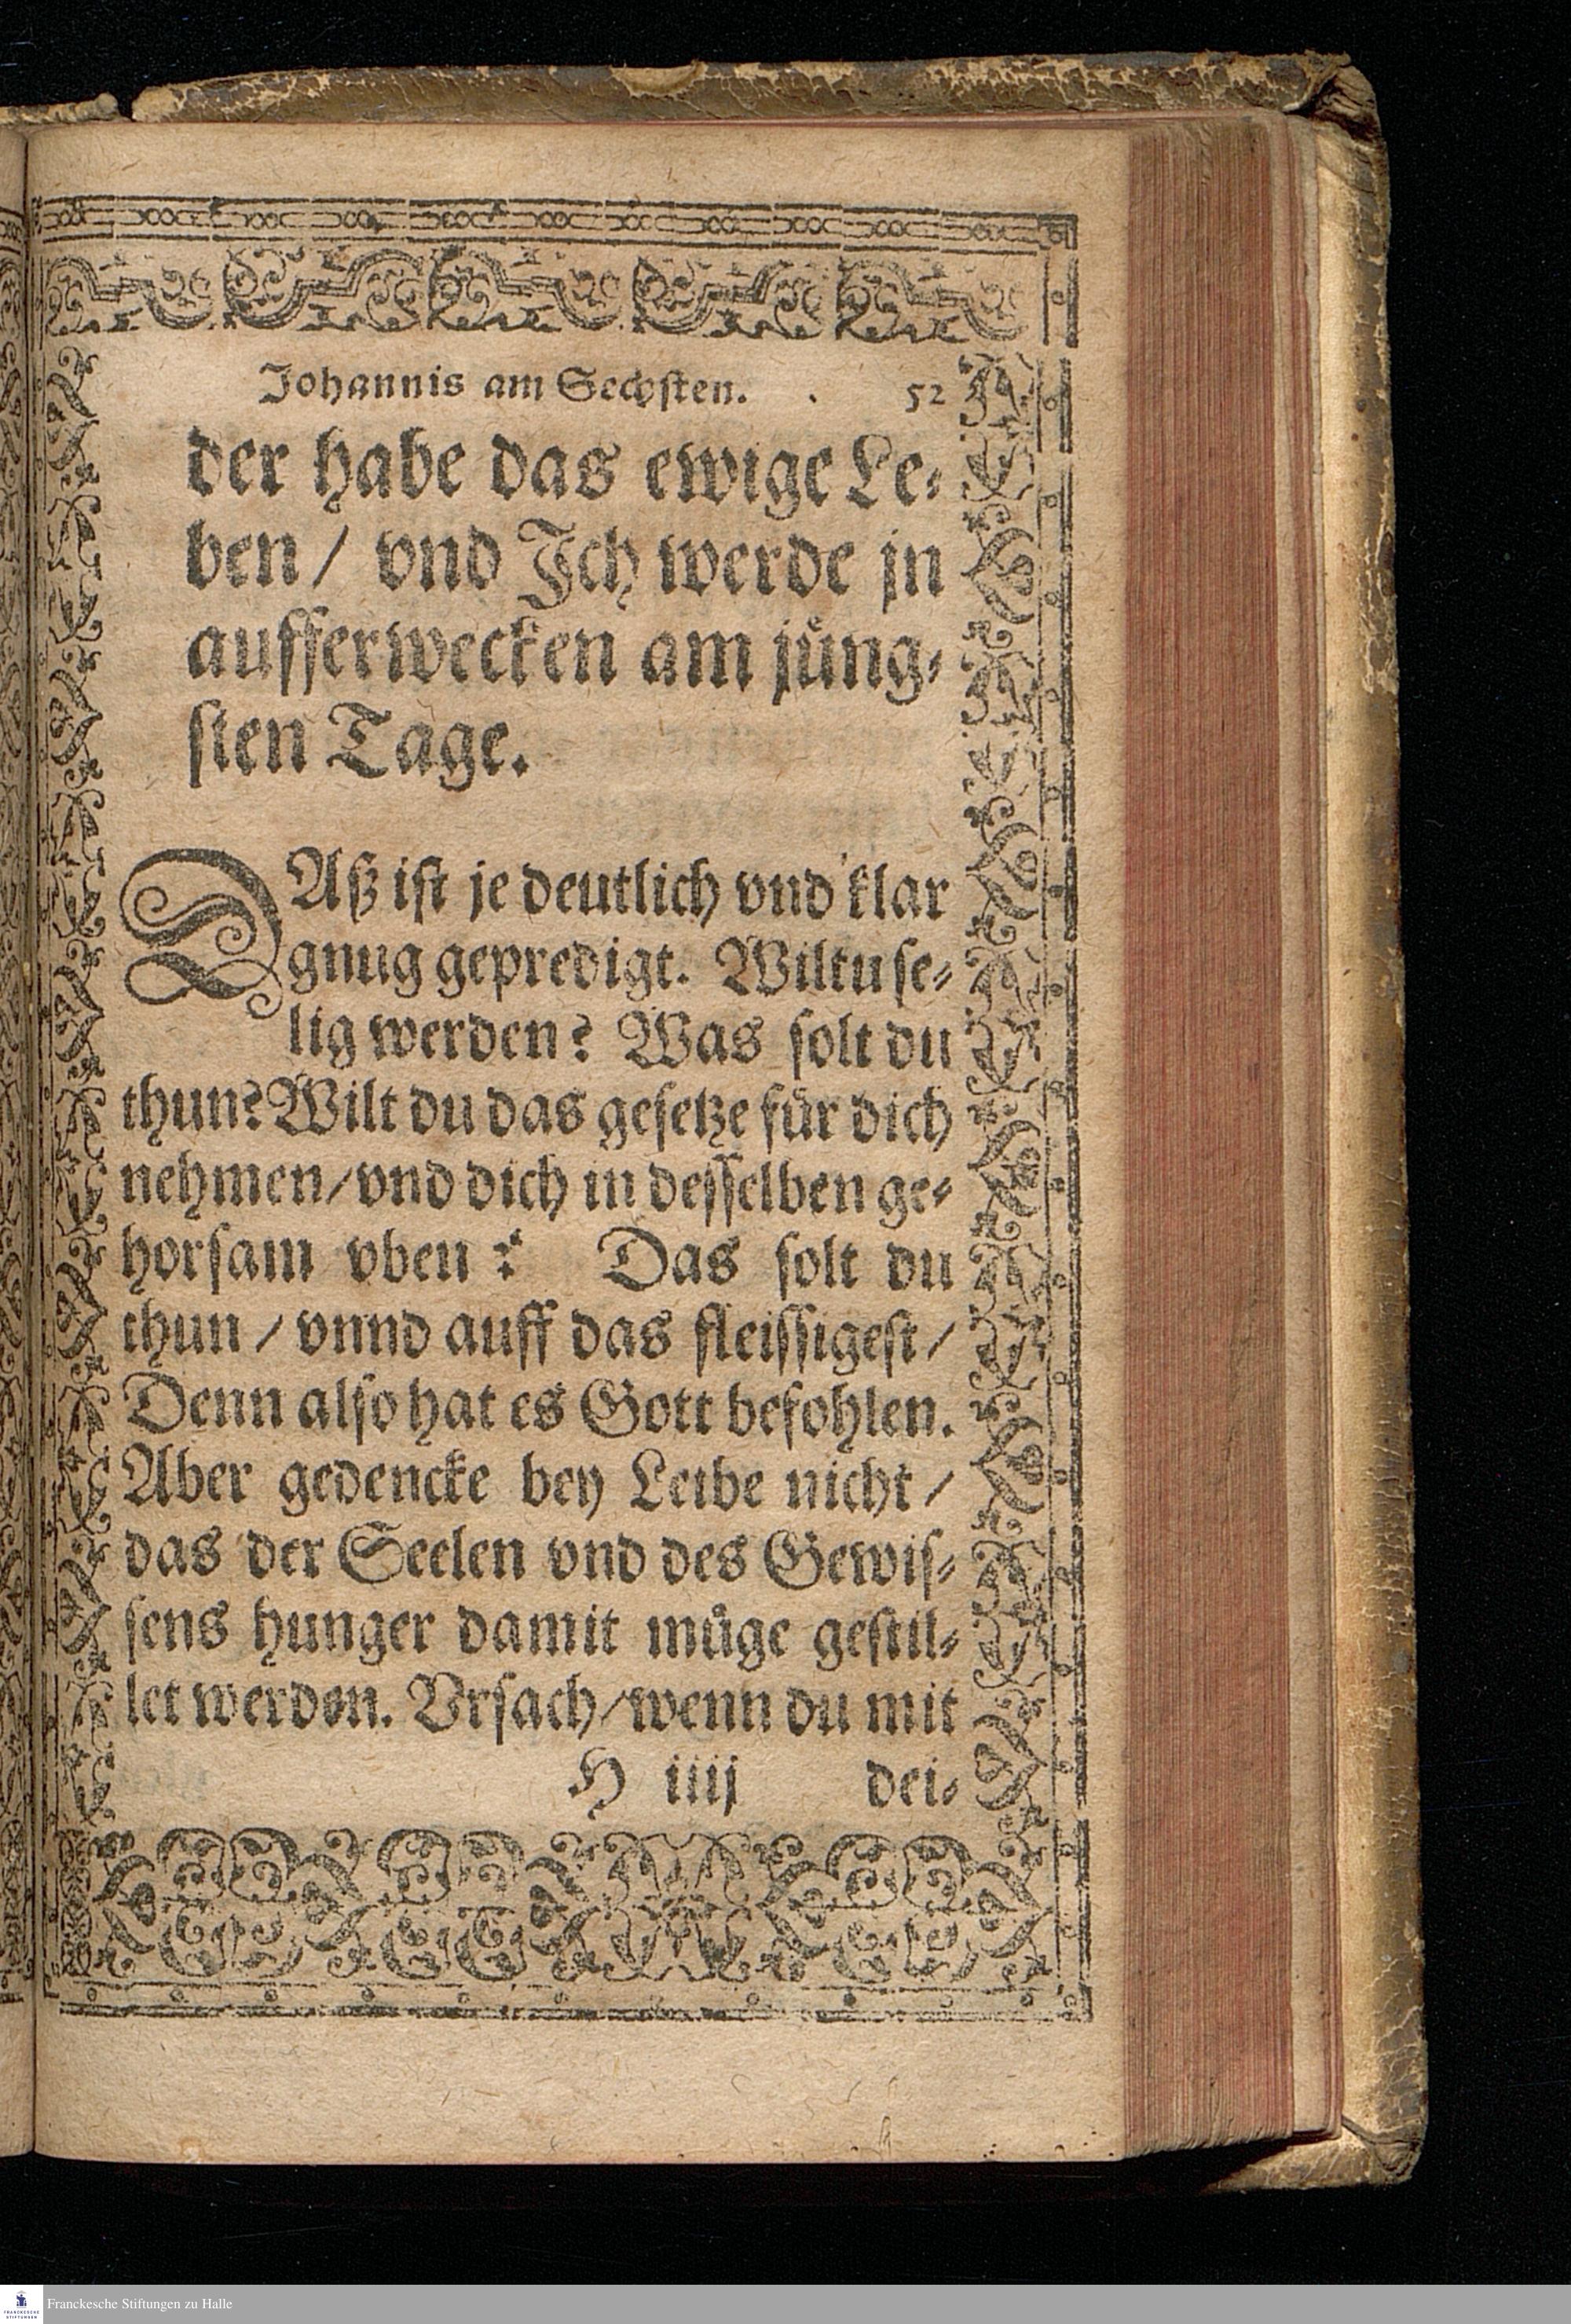 Johannis am Sechsten. 52
der habe das ewige Le-
ben/ vnd Ich werde jn
aufferwecken am jüng-
sten Tage.
DAß ist je deutlich vnd klar
gnug gepredigt. Wiltu se-
lig werden? Was solt du
thun? Wilt du das gesetze für dich
nehmen/vnd dich in desselben ge-
horsam vben? Das solt du
thun/ vnnd auff das fleissigest/
Denn also hat es Gott befohlen.
Aber gedencke bey Leibe nicht/
das der Seelen vnd des Gewis-
sens hunger damit müge gestil-
let werden. Vrsach/wenn du mit
H iiij dei-
FRANCKESCHE STIFTUNGEN
Franckesche Stiftungen zu Halle